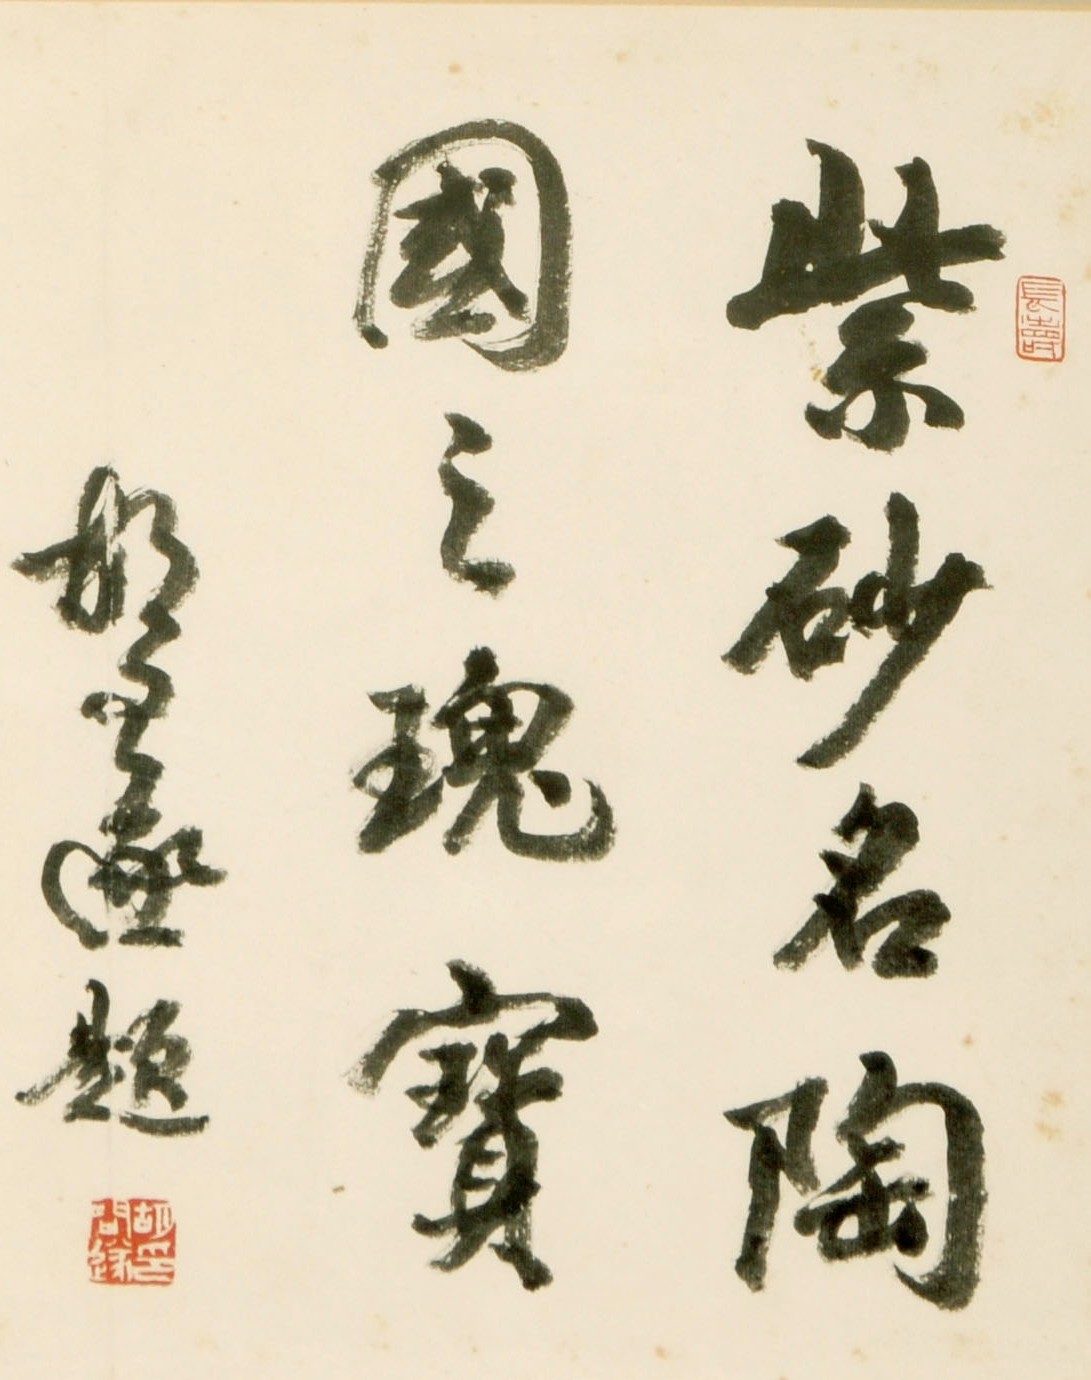 紫砂名陶
國之瑰寶
胡問遂題
長壽
胡問遂印